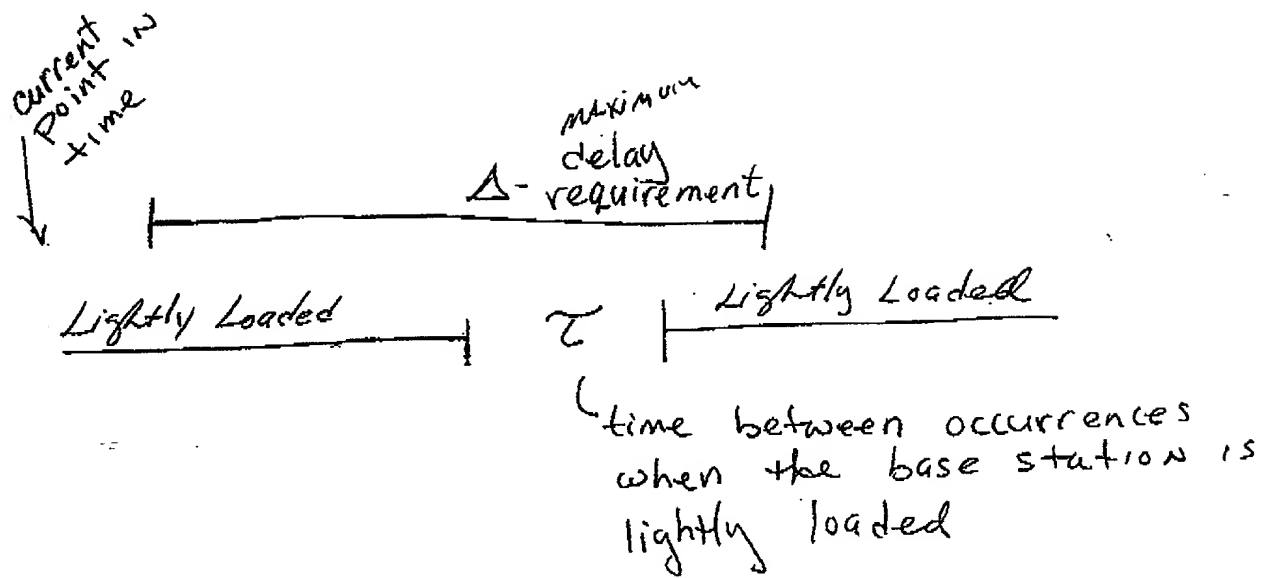 current
point in
time
maximum
delay
Δ- requirement
Lightly Loaded
τ
Lightly Loaded
time between occurrences
when the base station is
lightly loaded